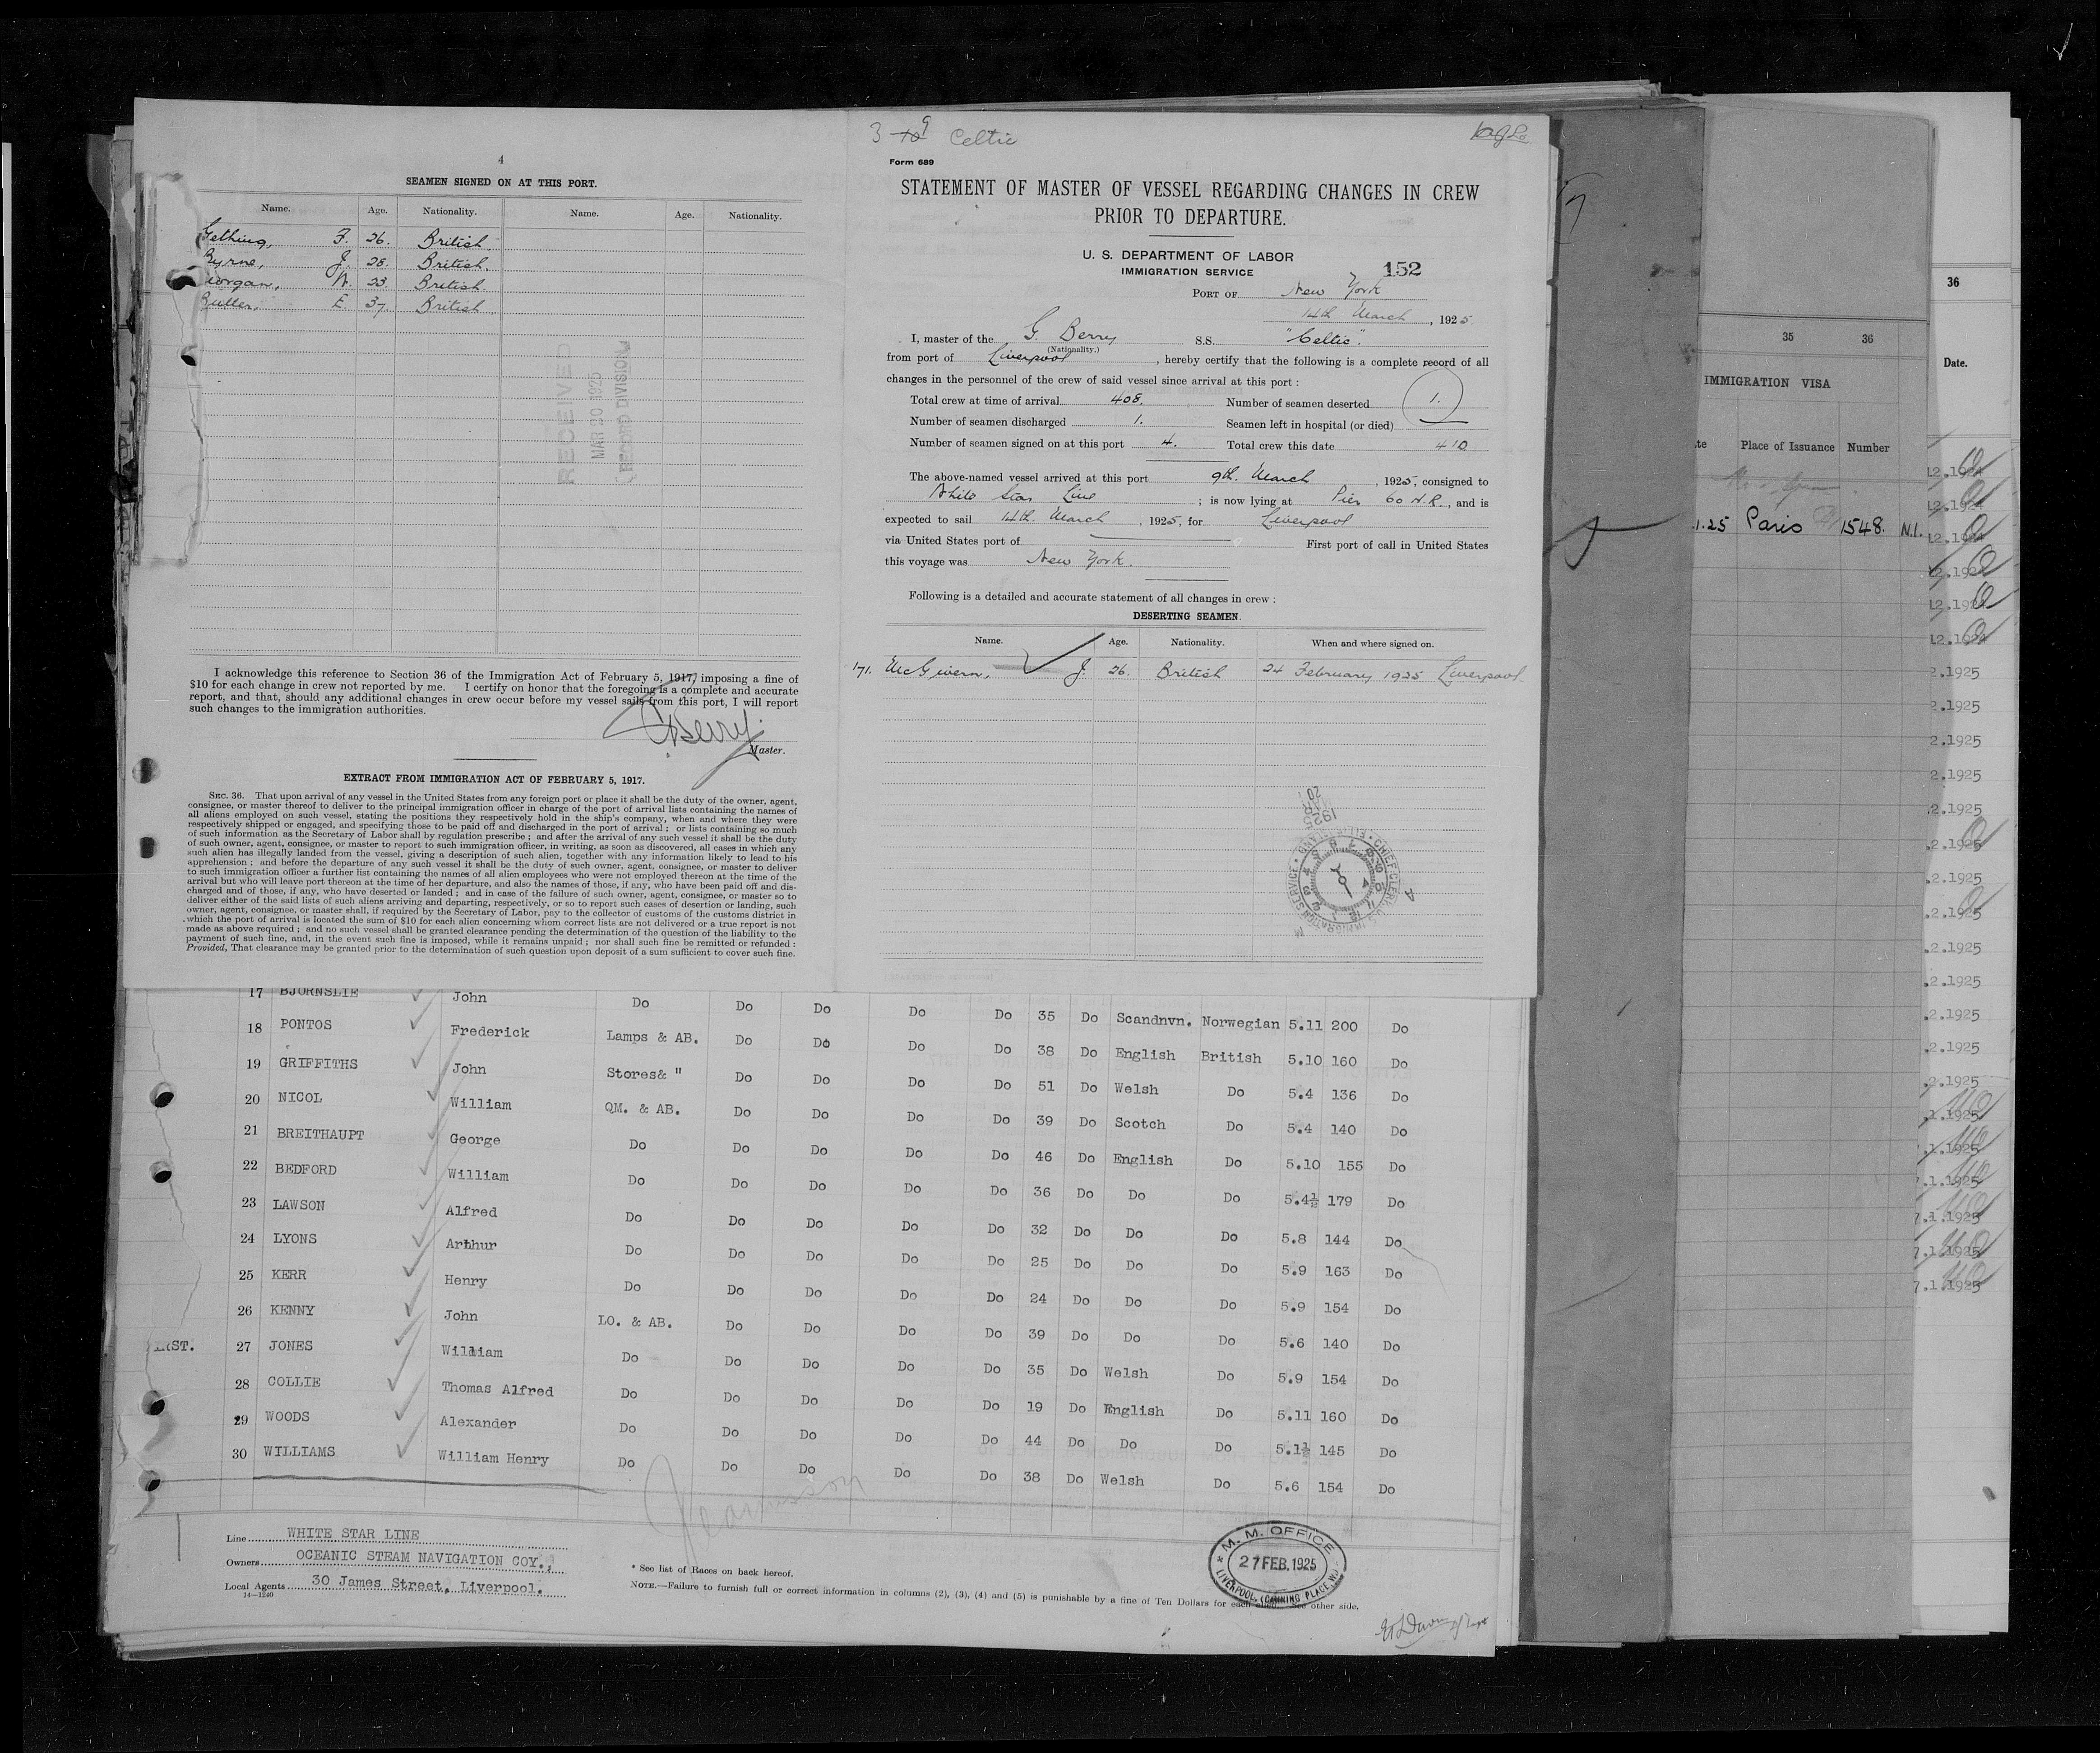 4
SEAMEN SIGNED ON AT THIS PORT.
Name. Age. Nationality. Name. Age. Nationality.
Gething, F. 26. British.
Byrne, J. 28. British.
Morgan, W. 23. British.
Butler, E. 37. British.
RECEIVED
MAR 20 1925
RECORD DIVISION
I acknowledge this reference to Section 36 of the Immigration Act of February 5, 1917, imposing a fine of
$10 for each change in crew not reported by me. I certify on honor that the foregoing is a complete and accurate
report, and that, should any additional changes in crew occur before my vessel sails from this port, I will report
such changes to the immigration authorities.
Berry
Master.
EXTRACT FROM IMMIGRATION ACT OF FEBRUARY 5, 1917.
SEC. 36. That upon arrival of any vessel in the United States from any foreign port or place it shall be the duty of the owner, agent,
consignee, or master thereof to deliver to the principal immigration officer in charge of the port of arrival lists containing the names of
all aliens employed on such vessel, stating the positions they respectively hold in the ship's company, when and where they were
respectively shipped or engaged, and specifying those to be paid off and discharged in the port of arrival; or lists containing so much
of such information as the Secretary of Labor shall by regulation prescribe; and after the arrival of any such vessel it shall be the duty
of such owner, agent, consignee, or master to report to such immigration officer, in writing, as soon as discovered, all cases in which any
such alien has illegally landed from the vessel, giving a description of such alien, together with any information likely to lead to his
apprehension; and before the departure of any such vessel it shall be the duty of such owner, agent, consignee, or master to deliver
to such immigration officer a further list containing the names of all alien employees who were not employed thereon at the time of the
arrival but who will leave port thereon at the time of her departure, and also the names of those, if any, who have been paid off and dis-
charged and of those, if any, who have deserted or landed; and in case of the failure of such owner, agent, consignee, or master so to
deliver either of the said lists of such aliens arriving and departing, respectively, or so to report such cases of desertion or landing, such
owner, agent, consignee, or master shall, if required by the Secretary of Labor, pay to the collector of customs of the customs district in
which the port of arrival is located the sum of $10 for each alien concerning whom correct lists are not delivered or a true report is not
made as above required; and no such vessel shall be granted clearance pending the determination of the question of the liability to the
payment of such fine, and, in the event such fine is imposed, while it remains unpaid; nor shall such fine be remitted or refunded:
Provided, That clearance may be granted prior to the determination of such question upon deposit of a sum sufficient to cover such fine.
3 9 Celtic
Form 689
STATEMENT OF MASTER OF VESSEL REGARDING CHANGES IN CREW
PRIOR TO DEPARTURE.
U. S. DEPARTMENT OF LABOR
IMMIGRATION SERVICE
152
PORT OF New York
14th March, 1925
I, master of the G. Berry S.S. "Celtic".
(Nationality.)
from port of Liverpool, hereby certify that the following is a complete record of all
changes in the personnel of the crew of said vessel since arrival at this port:
Total crew at time of arrival 408. Number of seamen deserted 1.
Number of seamen discharged 1. Seamen left in hospital (or died)
Number of seamen signed on at this port 4. Total crew this date 410
The above-named vessel arrived at this port 9th. March, 1925, consigned to
White Star Line; is now lying at Pier 60 N.R., and is
expected to sail 14th March, 1925, for Liverpool
via United States port of First port of call in United States
this voyage was New York.
Following is a detailed and accurate statement of all changes in crew:
DESERTING SEAMEN.
Name. Age. Nationality. When and where signed on.
171. McGivern, J. 26. British 24 February 1925 Liverpool
1925 MAR 20
CHIEF CLERK U.S. IMMIGRATION SERVICE ELLIS ISLAND
17 BJORNSLIE John Do Do Do Do Do 35 Do Scandnvn. Norwegian 5.11 200 Do
18 PONTOS Frederick Lamps & AB. Do Do Do Do 38 Do English British 5.10 160 Do
19 GRIFFITHS John Stores& " Do Do Do Do 51 Do Welsh Do 5.4 136 Do
20 NICOL William QM. & AB. Do Do Do Do 39 Do Scotch Do 5.4 140 Do
21 BREITHAUPT George Do Do Do Do Do 46 Do English Do 5.10 155 Do
22 BEDFORD William Do Do Do Do Do 36 Do Do Do 5.4½ 179 Do
23 LAWSON Alfred Do Do Do Do Do 32 Do Do Do 5.8 144 Do
24 LYONS Arthur Do Do Do Do Do 25 Do Do Do 5.9 163 Do
25 KERR Henry Do Do Do Do Do 24 Do Do Do 5.9 154 Do
26 KENNY John LO. & AB. Do Do Do Do 39 Do Do Do 5.6 140 Do
27 JONES William Do Do Do Do Do 35 Do Welsh Do 5.9 154 Do
28 COLLIE Thomas Alfred Do Do Do Do Do 19 Do English Do 5.11 160 Do
29 WOODS Alexander Do Do Do Do Do 44 Do Do Do 5.1½ 145 Do
30 WILLIAMS William Henry Do Do Do Do Do 38 Do Welsh Do 5.6 154 Do
Line WHITE STAR LINE
Owners OCEANIC STEAM NAVIGATION COY.,
Local Agents 30 James Street, Liverpool.
14—1240
* See list of Races on back hereof.
NOTE.—Failure to furnish full or correct information in columns (2), (3), (4) and (5) is punishable by a fine of Ten Dollars for each alien. See other side.
M. M. OFFICE
27 FEB. 1925
LIVERPOOL, (CANNING PLACE, W.)
35 36
IMMIGRATION VISA
Place of Issuance Number
.1.25 Paris 1548. N.I.
36
Date.
12.1924
12.1924
12.1924
12.1924
12.1924
12.1924
2.1925
2.1925
2.1925
2.1925
2.1925
.2.1925
.2.1925
.2.1925
.2.1925
.2.1925
.2.1925
.2.1925
.2.1925
.1.1925
.1.1925
7.1.1925
7.1.1925
7.1.1925
7.1.1925